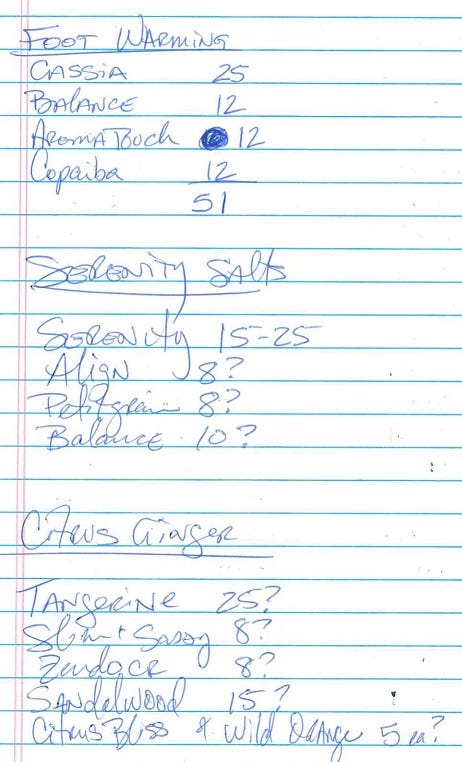 Foot Warming
Cassia 25
Balance 12
AromaTouch 12
Copaiba 12
51
Serenity Salts
Serenity 15-25
Align 8?
Petitgrain 8?
Balance 10?
Citrus Ginger
Tangerine 25?
Slim + Sassy 8?
Zendocr 8?
Sandelwood 15?
Citrus Bliss & Wild Orange 5 ea?